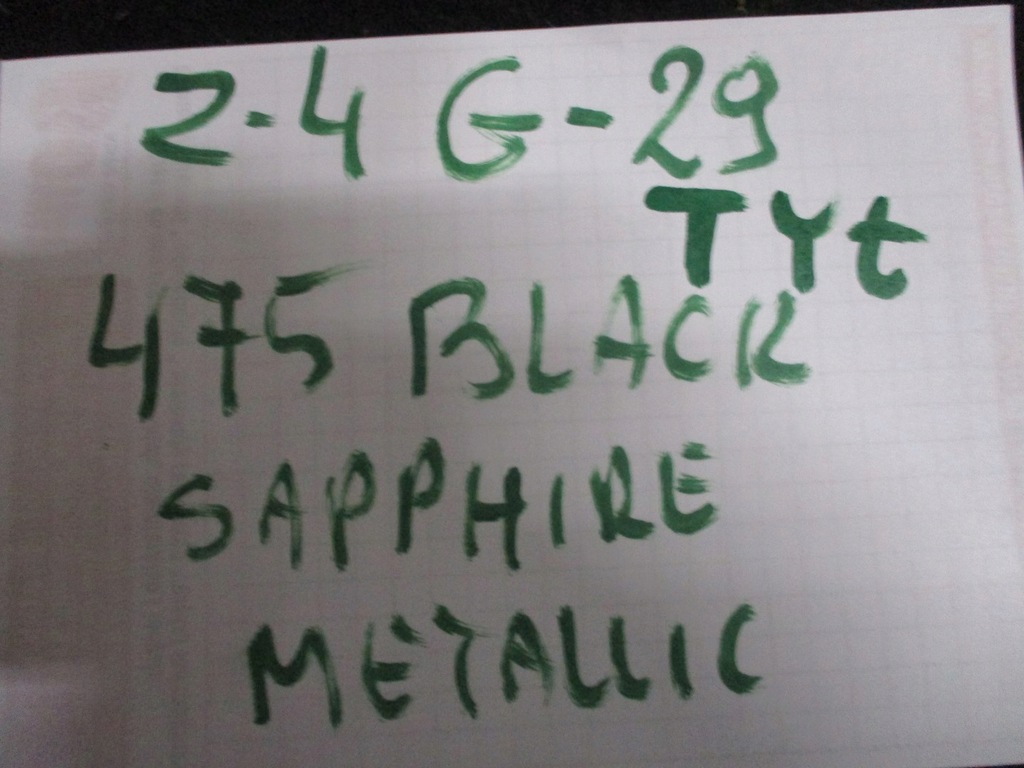 Z-4 G-29
TYt
475 BLACK
SAPPHIRE
METALLIC